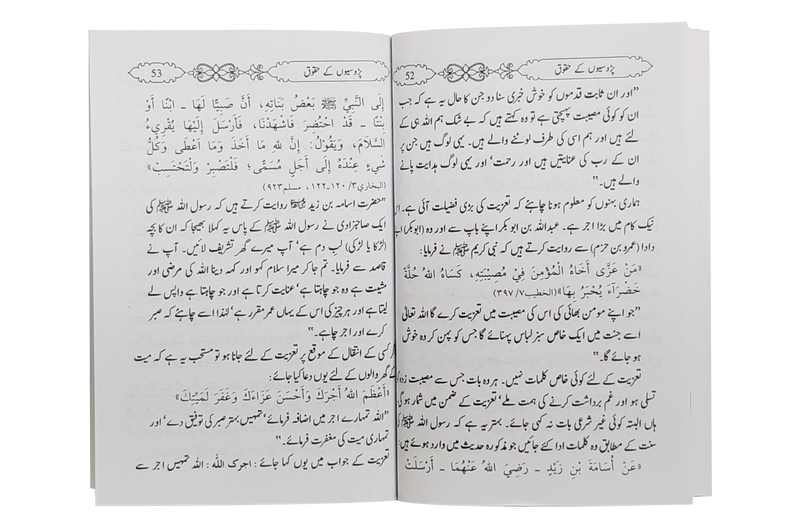 پڑوسیوں کے حقوق
52
”اور ان ثابت قدموں کو خوش خبری سنا دو جن کا حال یہ ہے کہ جب
ان کو کوئی مصیبت پہنچتی ہے تو وہ کہتے ہیں کہ بے شک ہم اللہ ہی کے
لئے ہیں اور ہم اسی کی طرف لوٹنے والے ہیں۔ یہی لوگ ہیں جن پر
ان کے رب کی عنایتیں ہیں اور رحمت‘ اور یہی لوگ ہدایت پانے
والے ہیں۔“
ہماری بہنوں کو معلوم ہونا چاہئے کہ تعزیت کی بڑی فضیلت آئی ہے۔ اس
نیک کام میں بڑا اجر ہے۔ عبداللہ بن ابو بکر اپنے باپ سے اور وہ (ابو بکر) اپنے
دادا (عمرو بن حزم) سے روایت کرتے ہیں کہ نبی کریم ﷺ نے فرمایا:
«مَنْ عَزَّى أَخَاهُ الْمُؤْمِنَ فِيْ مُصِيْبَتِهِ، كَسَاهُ اللهُ حُلَّةً
خَضْرَآءَ يُحْبَرُ بِهَا» (الخطیب ۷/ ۳۹۷)
”جو اپنے مومن بھائی کی اس کی مصیبت میں تعزیت کرے گا اللہ تعالٰی
اسے جنت میں ایک خاص سبز لباس پہنائے گا جس کو پہن کر وہ خوش
ہو جائے گا۔“
تعزیت کے لئے کوئی خاص کلمات نہیں۔ ہر وہ بات جس سے مصیبت زدہ کو
تسلی ہو اور غم برداشت کرنے کی ہمت ملے‘ تعزیت کے ضمن میں شمار ہو گی
ہاں البتہ کوئی غیر شرعی بات نہ کہی جائے۔ بہتر یہ ہے کہ رسول اللہ ﷺ کی
سنت کے مطابق وہ کلمات ادا کئے جائیں جو مذکورہ حدیث میں وارد ہوئے ہیں:
«عَنْ أُسَامَةَ بْنِ زَيْدٍ - رَضِيَ اللهُ عَنْهُمَا - أَرْسَلَتْ
پڑوسیوں کے حقوق
53
إِلَى النَّبِيِّ ﷺ بَعْضُ بَنَاتِهِ، أَنَّ صَبِيًّا لَهَا - ابْنًا أَوْ
بِنْتًا - قَدْ احْتُضِرَ فَاشْهَدْنَا، فَأَرْسَلَ إِلَيْهَا يُقْرِيءُ
السَّلَامَ، وَيَقُوْلُ: إِنَّ للهِ مَا أَخَذَ وَمَا أَعْطَى وَكُلُّ
شَيءٍ عِنْدَهُ إِلَى أَجَلٍ مُسَمًّى؛ فَلْتَصْبِرْ وَلْتَحْتَسِبْ»
(البخاری ۳/ ۱۲۰-۱۲۲، مسلم ۹۲۳)
”حضرت اسامہ بن زید ﷺ روایت کرتے ہیں کہ رسول اللہ ﷺ کی
ایک صاحبزادی نے رسول اللہ ﷺ کے پاس یہ کہلا بھیجا کہ ان کا بچہ
(لڑکا یا لڑکی) لب دم ہے‘ آپ میرے گھر تشریف لائیں۔ آپ نے
قاصد سے فرمایا۔ تم جا کر میرا سلام کہو اور کہہ دینا اللہ کی مرضی اور
مشیت ہے وہ جو چاہتا ہے‘ عنایت کرتا ہے اور جو چاہتا ہے واپس لے
لیتا ہے اور ہر چیز کی اس کے یہاں عمر مقرر ہے‘ لہٰذا اسے چاہئے کہ صبر
کرے اور اجر چاہے۔“
کسی کے انتقال کے موقع پر تعزیت کے لئے جانا ہو تو مستحب یہ ہے کہ میت
کے گھر والوں کے لئے یوں دعا کیا جائے:
«أَعْظَمَ اللهُ أَجْرَكَ وَأَحْسَنَ عَزَاءَكَ وَغَفَرَ لِمَيِّتِكَ»
”اللہ تمہارے اجر میں اضافہ فرمائے‘ تمہیں بہتر صبر کی توفیق دے‘ اور
تمہاری میت کی مغفرت فرمائے۔“
تعزیت کے جواب میں یوں کہا جائے: اجرک اللہ: اللہ تمہیں اجر سے